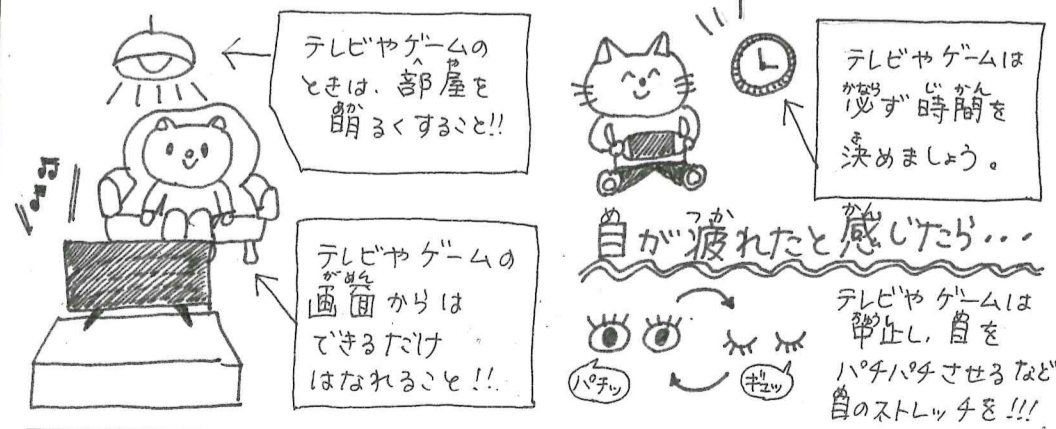 テレビやゲームの
ときは、部屋を
明るくすること!!
テレビやゲームの
画面からは
できるだけ
はなれること!!
テレビやゲームは
必ず時間を
決めましょう。
目が疲れたと感じたら…
パチッ
ギュッ
テレビやゲームは
中止し、目を
パチパチさせるなど
目のストレッチを!!!